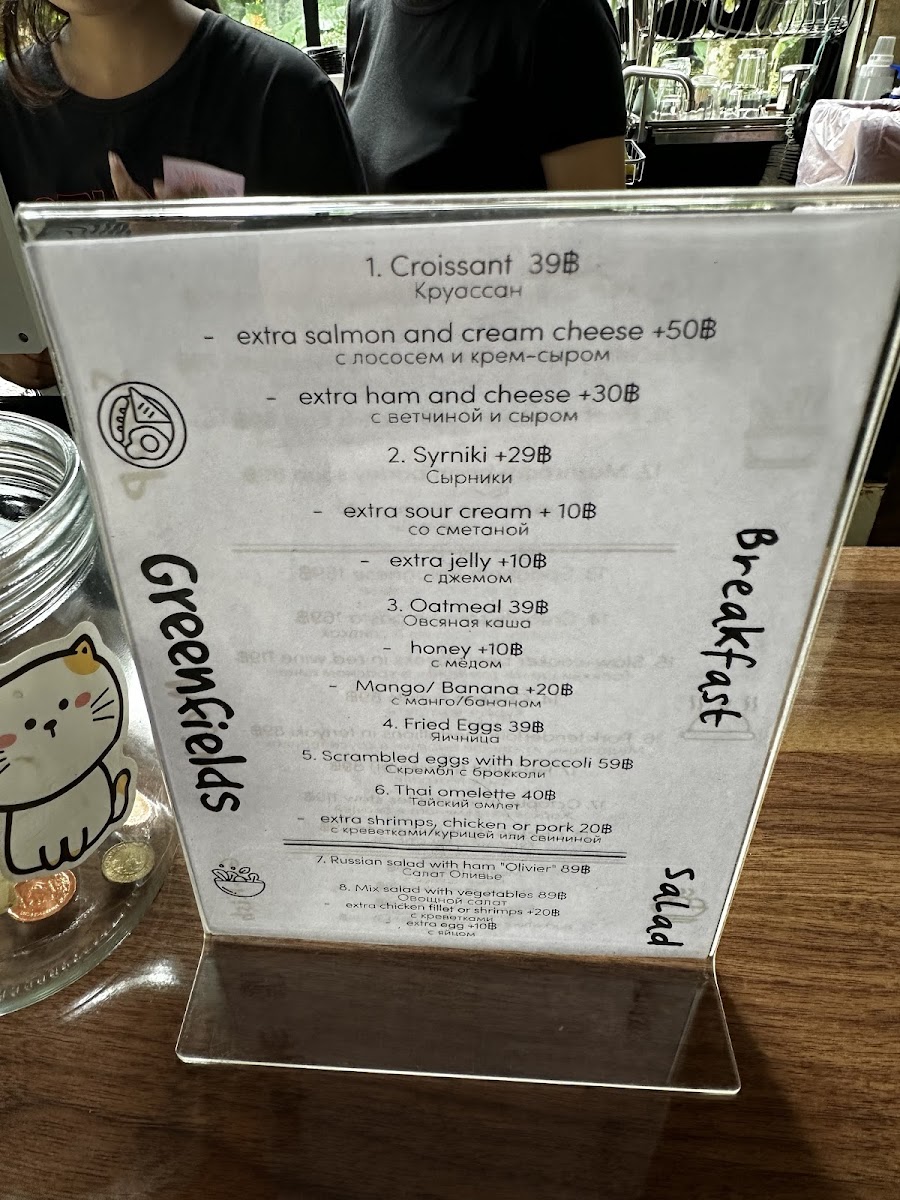 1. Croissant 39฿
Круассан
- extra salmon and cream cheese +50฿
с лососем и крем-сыром
- extra ham and cheese +30฿
с ветчиной и сыром
2. Syrniki +29฿
Сырники
- extra sour cream + 10฿
со сметаной
- extra jelly +10฿
с джемом
3. Oatmeal 39฿
Овсяная каша
- honey +10฿
с мёдом
- Mango/ Banana +20฿
с манго/бананом
4. Fried Eggs 39฿
Яичница
5. Scrambled eggs with broccoli 59฿
Скрембл с брокколи
6. Thai omelette 40฿
Тайский омлет
- extra shrimps, chicken or pork 20฿
с креветками/курицей или свининой
7. Russian salad with ham "Olivier" 89฿
Салат Оливье
8. Mix salad with vegetables 89฿
Овощной салат
- extra chicken fillet or shrimps +20฿
с креветками
extra egg +10฿
с яйцом
Greenfields
Breakfast
Salad